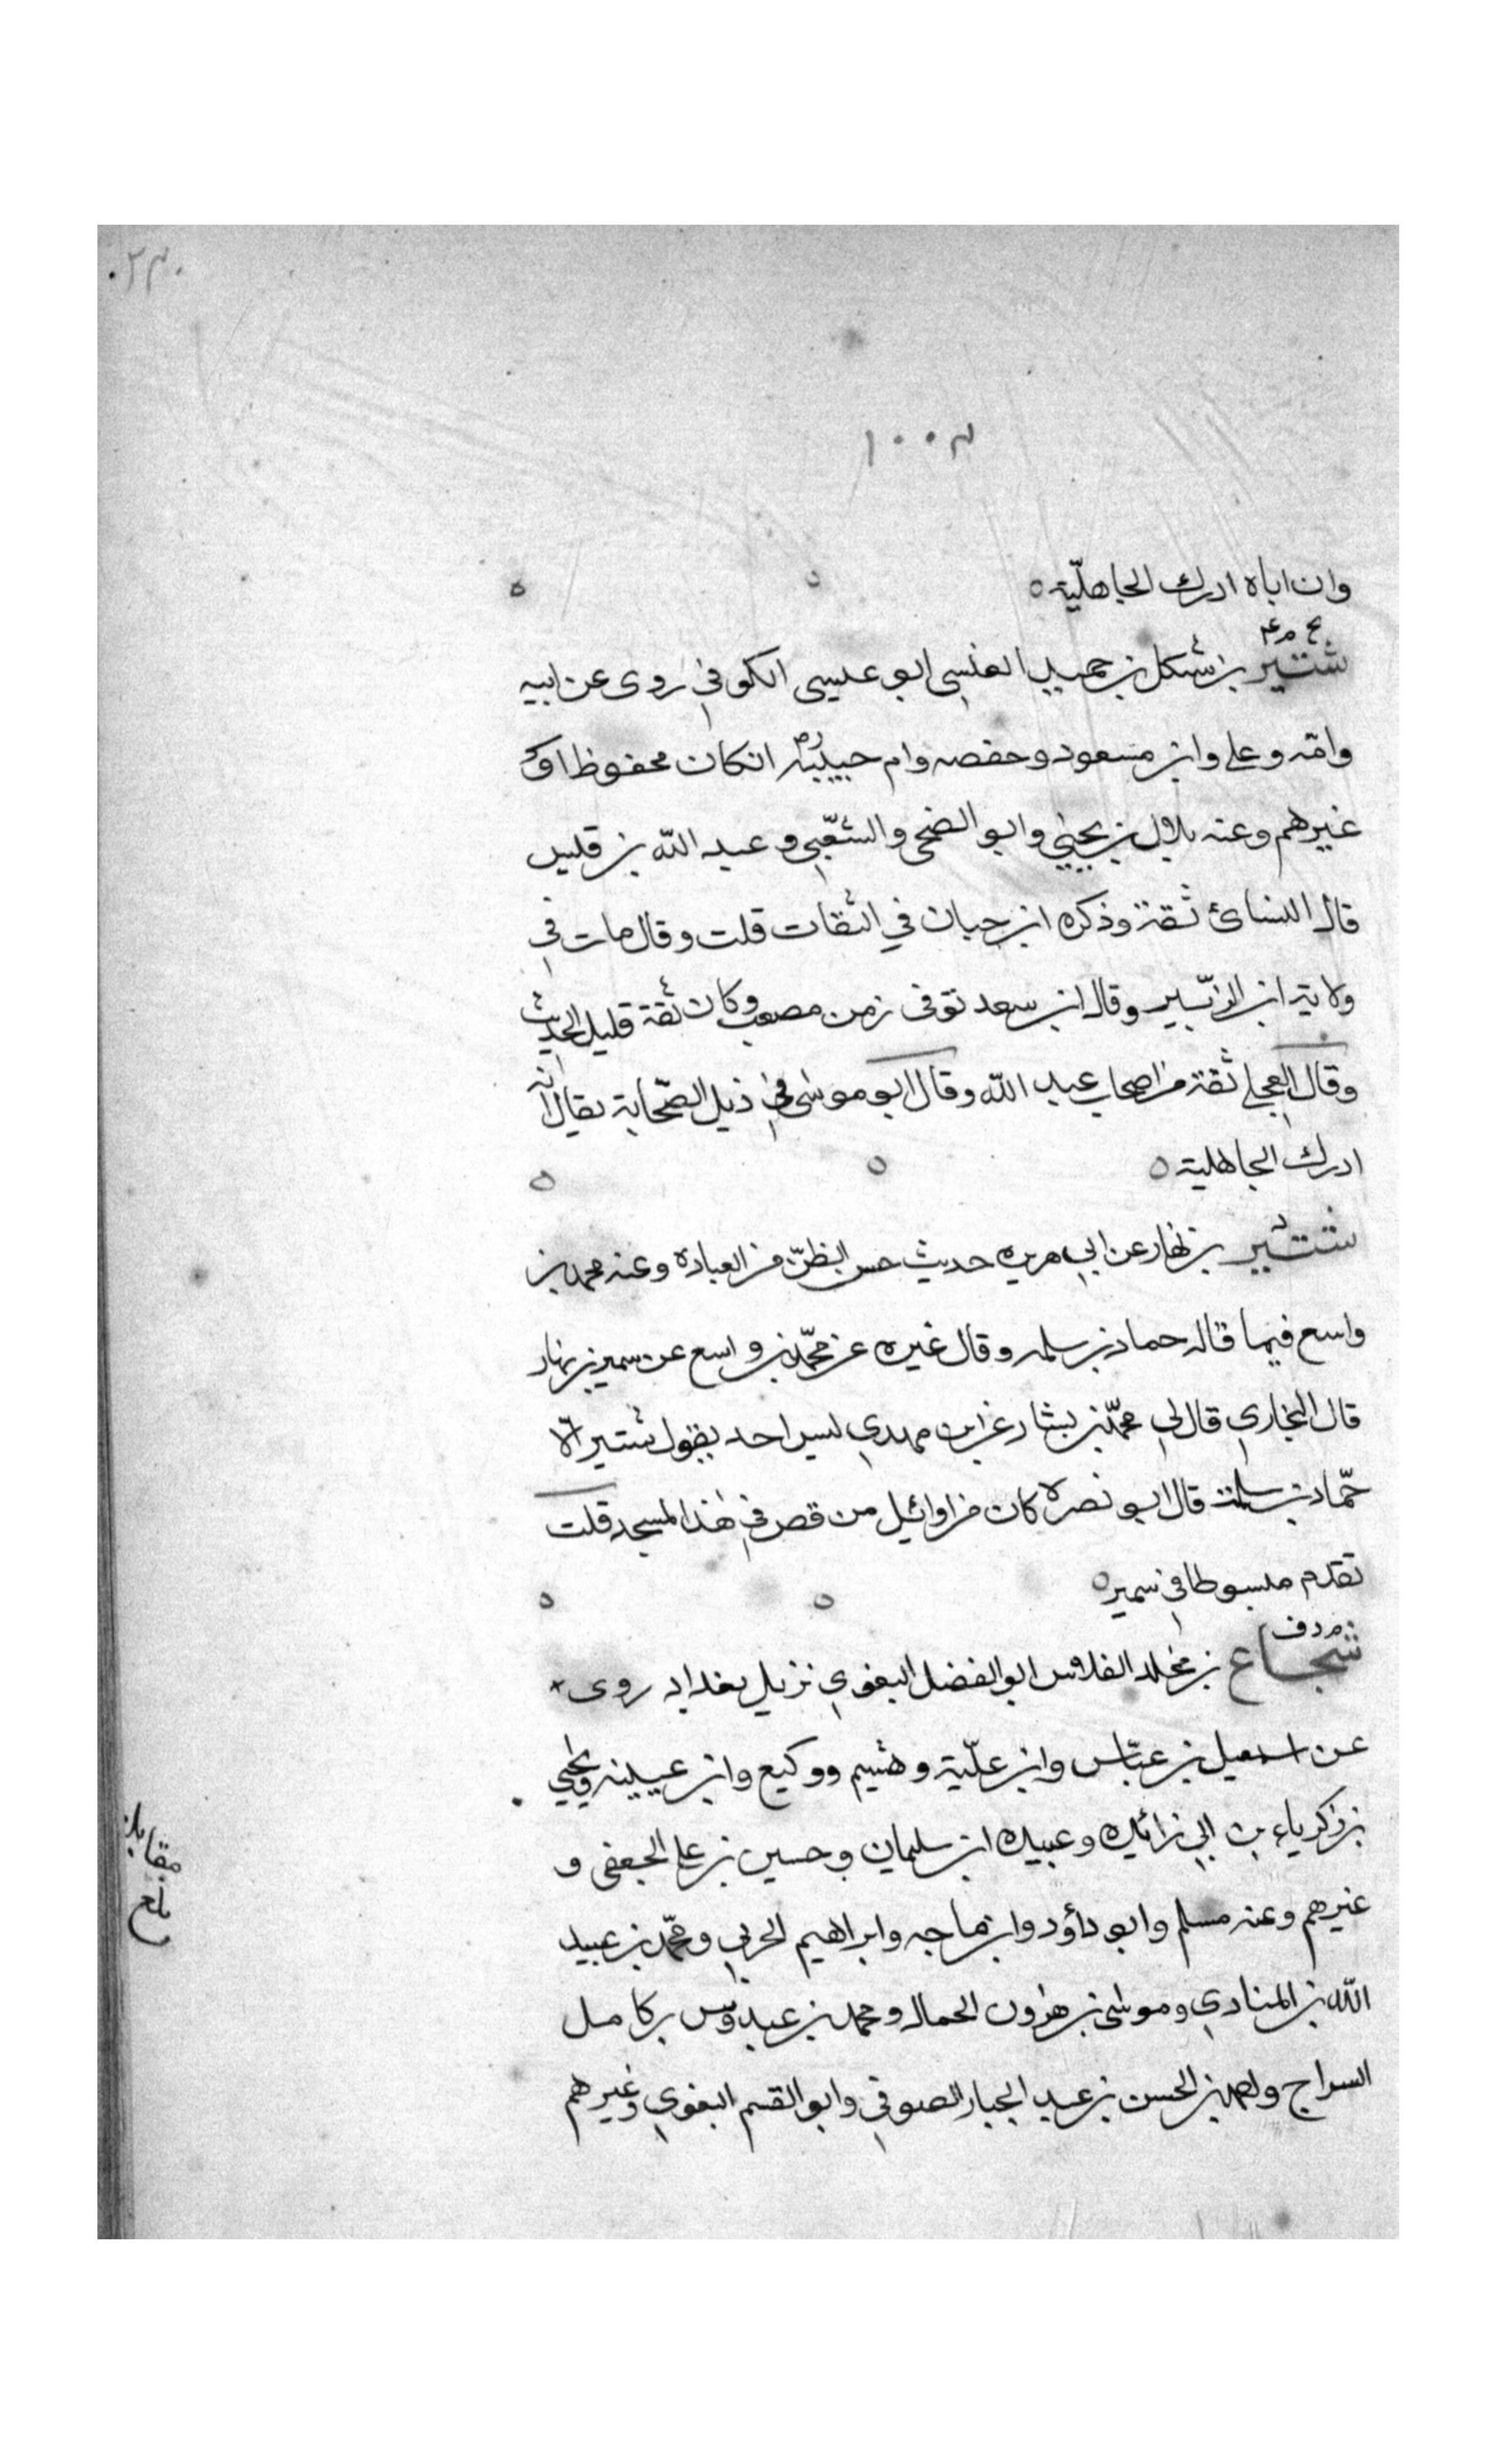 ٢٣٠
١٠٠٣
وان اباه ادرك الجاهليّة ٥
بخ م ٤
شتير بن شكل بن حميد العبسي ابو عيسى الكوفي روى عن ابيه
وامّه وعلي وابن مسعود وحفصه وام حبيبة انكان محفوظا و
غيرهم وعنه بلال بن يحيى وابو الضحى والشعبي وعبد الله بن قيس
قال النسائ ثقة وذكره ابن حبان في الثقات قلت وقال مات في
ولاية ابن الزبير وقال ابن سعد توفى زمن مصعب وكان ثقة قليل الحديث
وقال العجلي ثقة من اصحاب عبد الله وقال ابو موسى في ذيل الصّحابة يقال انه
ادرك الجاهلية ٥
شتير بن نهار عن ابي هريره حديث حسن الظنّ من العبادة وعنه محمد بن
واسع فيما قاله حماد بن سلمه وقال غيره عن محمّد بن واسع عن سمير بن نهار
قال البخاري قال لي محمّد بن بشار عن ابن مهدي ليس احد يقول شتير الّا
حمّاد بن سلمة قال ابو نصره كان من اوائيل من قص في هذا المسجد قلت
تقدم مبسوطا في سمير ٥
م د ق
شجاع بن مخلد الفلاس ابو الفضل البغوي نزيل بغداد روى
عن اسمعيل بن عيّاش وابن عليّة وهشيم ووكيع وابن عيينه ويحيى
بن زكرياء بن ابي زائده وعبيده ابن سليمان وحسين بن علي الجعفى و
غيرهم وعنه مسلم وابو داؤد وابن ماجه وابراهيم الحربي ومحمّد بن عبيد
الله بن المنادي وموسى بن هرون الحمال ومحمد بن عبدوس بن كامل
السراج واحمد بن الحسن بن عبد الجبار الصوفي وابو القسم البغوي وغيرهم
بلغ مقابلة